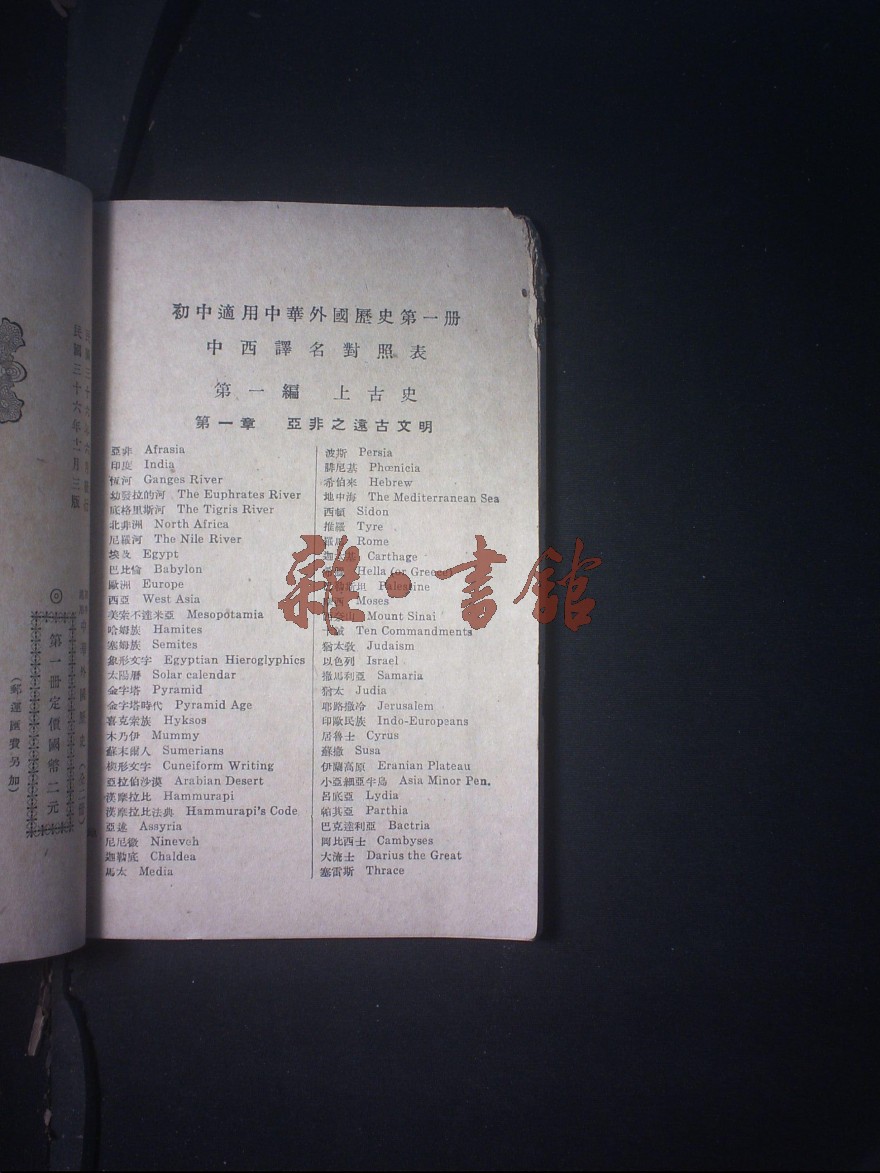 初中適用中華外國歷史第一册
中西譯名對照表
第一編 上古史
第一章 亞非之遠古文明
亞非 Afrasia
印度 India
恆河 Ganges River
幼發拉的河 The Euphrates River
底格里斯河 The Tigris River
北非洲 North Africa
尼羅河 The Nile River
埃及 Egypt
巴比倫 Babylon
歐洲 Europe
西亞 West Asia
美索不達米亞 Mesopotamia
哈姆族 Hamites
塞姆族 Semites
象形文字 Egyptian Hieroglyphics
太陽曆 Solar calendar
金字塔 Pyramid
金字塔時代 Pyramid Age
喜克索族 Hyksos
木乃伊 Mummy
蘇末爾人 Sumerians
楔形文字 Cuneiform Writing
亞拉伯沙漠 Arabian Desert
漢摩拉比 Hammurapi
漢摩拉比法典 Hammurapi's Code
亞述 Assyria
尼尼微 Nineveh
迦勒底 Chaldea
馬太 Media
波斯 Persia
腓尼基 Phœnicia
希伯來 Hebrew
地中海 The Mediterranean Sea
西頓 Sidon
推羅 Tyre
羅馬 Rome
Carthage
Hella (or Greece
Palestine
Moses
Mount Sinai
十誡 Ten Commandments
猶太教 Judaism
以色列 Israel
撒馬利亞 Samaria
猶太 Judia
耶路撒冷 Jerusalem
印歐民族 Indo-Europeans
居魯士 Cyrus
蘇撒 Susa
伊蘭高原 Eranian Plateau
小亞細亞半島 Asia Minor Pen.
呂底亞 Lydia
帕其亞 Parthia
巴克達利亞 Bactria
Cambyses
大流士 Darius the Great
塞雷斯 Thrace
民國三十六年十一月三版
中華外國歷史（全二冊）
◎第一冊定價國幣二元
（郵運匯費另加）
雜·書館